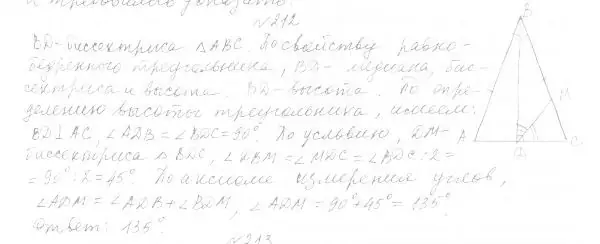 и требовалось доказать.
№212
BD-биссектриса △ABC. По свойству равно-
бедренного треугольника, BD- медиана, бис-
сектриса и высота. BD-высота. По опре-
делению высоты треугольника, имеем:
BD⊥AC, ∠ADB=∠BDC=90°. По условию, DM-
биссектриса △BDC, ∠BDM=∠MDC=∠BDC:2=
=90°:2=45°. По аксиоме измерения углов,
∠ADM=∠ADB+∠BDM, ∠ADM=90°+45°=135°.
Ответ: 135°.
№213
B
M
A
D
C